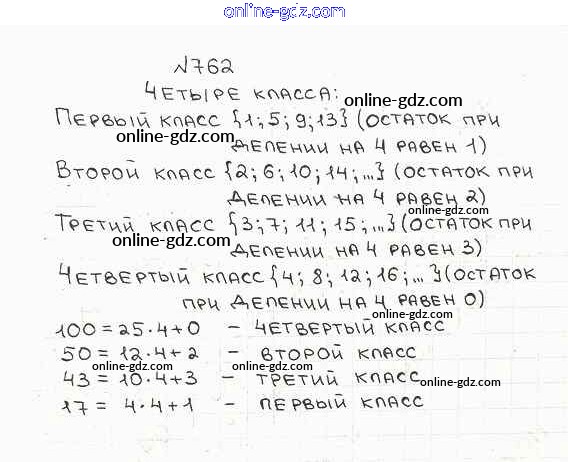 online-gdz.com
№762
ЧЕТЫРЕ КЛАССА:
online-gdz.com
ПЕРВЫЙ КЛАСС {1; 5; 9; 13} (ОСТАТОК ПРИ
online-gdz.com
ДЕЛЕНИИ НА 4 РАВЕН 1)
online-gdz.com
ВТОРОЙ КЛАСС {2; 6; 10; 14; ...} (ОСТАТОК ПРИ
ДЕЛЕНИИ НА 4 РАВЕН 2)
online-gdz.com
ТРЕТИЙ КЛАСС {3; 7; 11; 15; ...} (ОСТАТОК ПРИ
online-gdz.com
ДЕЛЕНИИ НА 4 РАВЕН 3)
online-gdz.com
ЧЕТВЕРТЫЙ КЛАСС {4; 8; 12; 16; ... } (ОСТАТОК
online-gdz.com
ПРИ ДЕЛЕНИИ НА 4 РАВЕН 0)
online-gdz.com
100 = 25·4+0 – ЧЕТВЕРТЫЙ КЛАСС
50 = 12·4+2 – ВТОРОЙ КЛАСС
43 = 10·4+3 – ТРЕТИЙ КЛАСС
online-gdz.com
17 = 4·4+1 – ПЕРВЫЙ КЛАСС
online-gdz.com